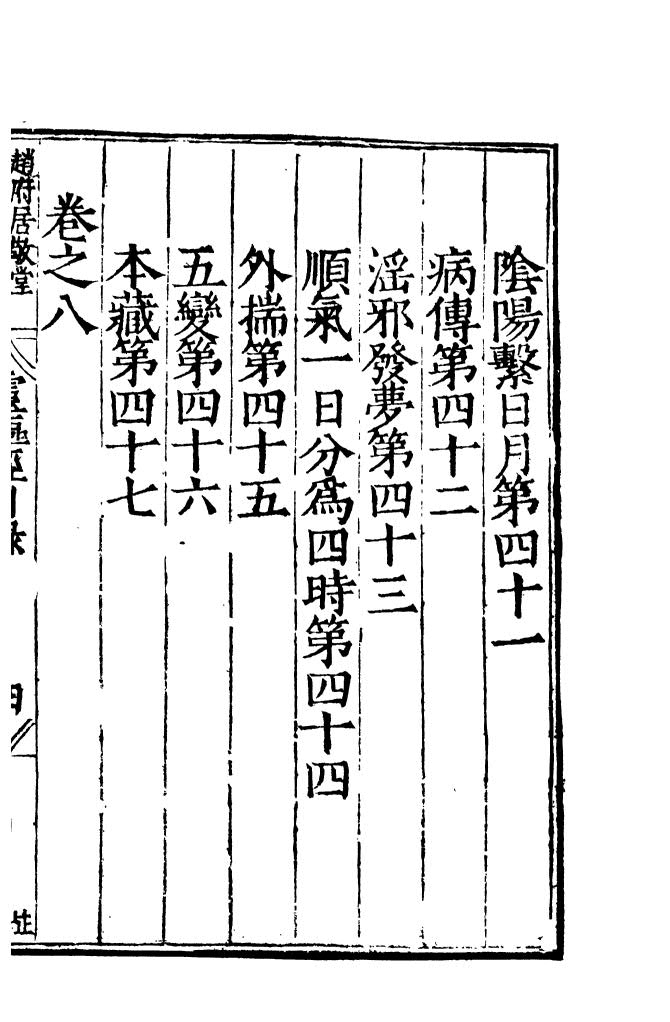 陰陽繫日月第四十一
病傳第四十二
淫邪發夢第四十三
順氣一日分爲四時第四十四
外揣第四十五
五變第四十六
本藏第四十七
卷之八
趙府居敬堂